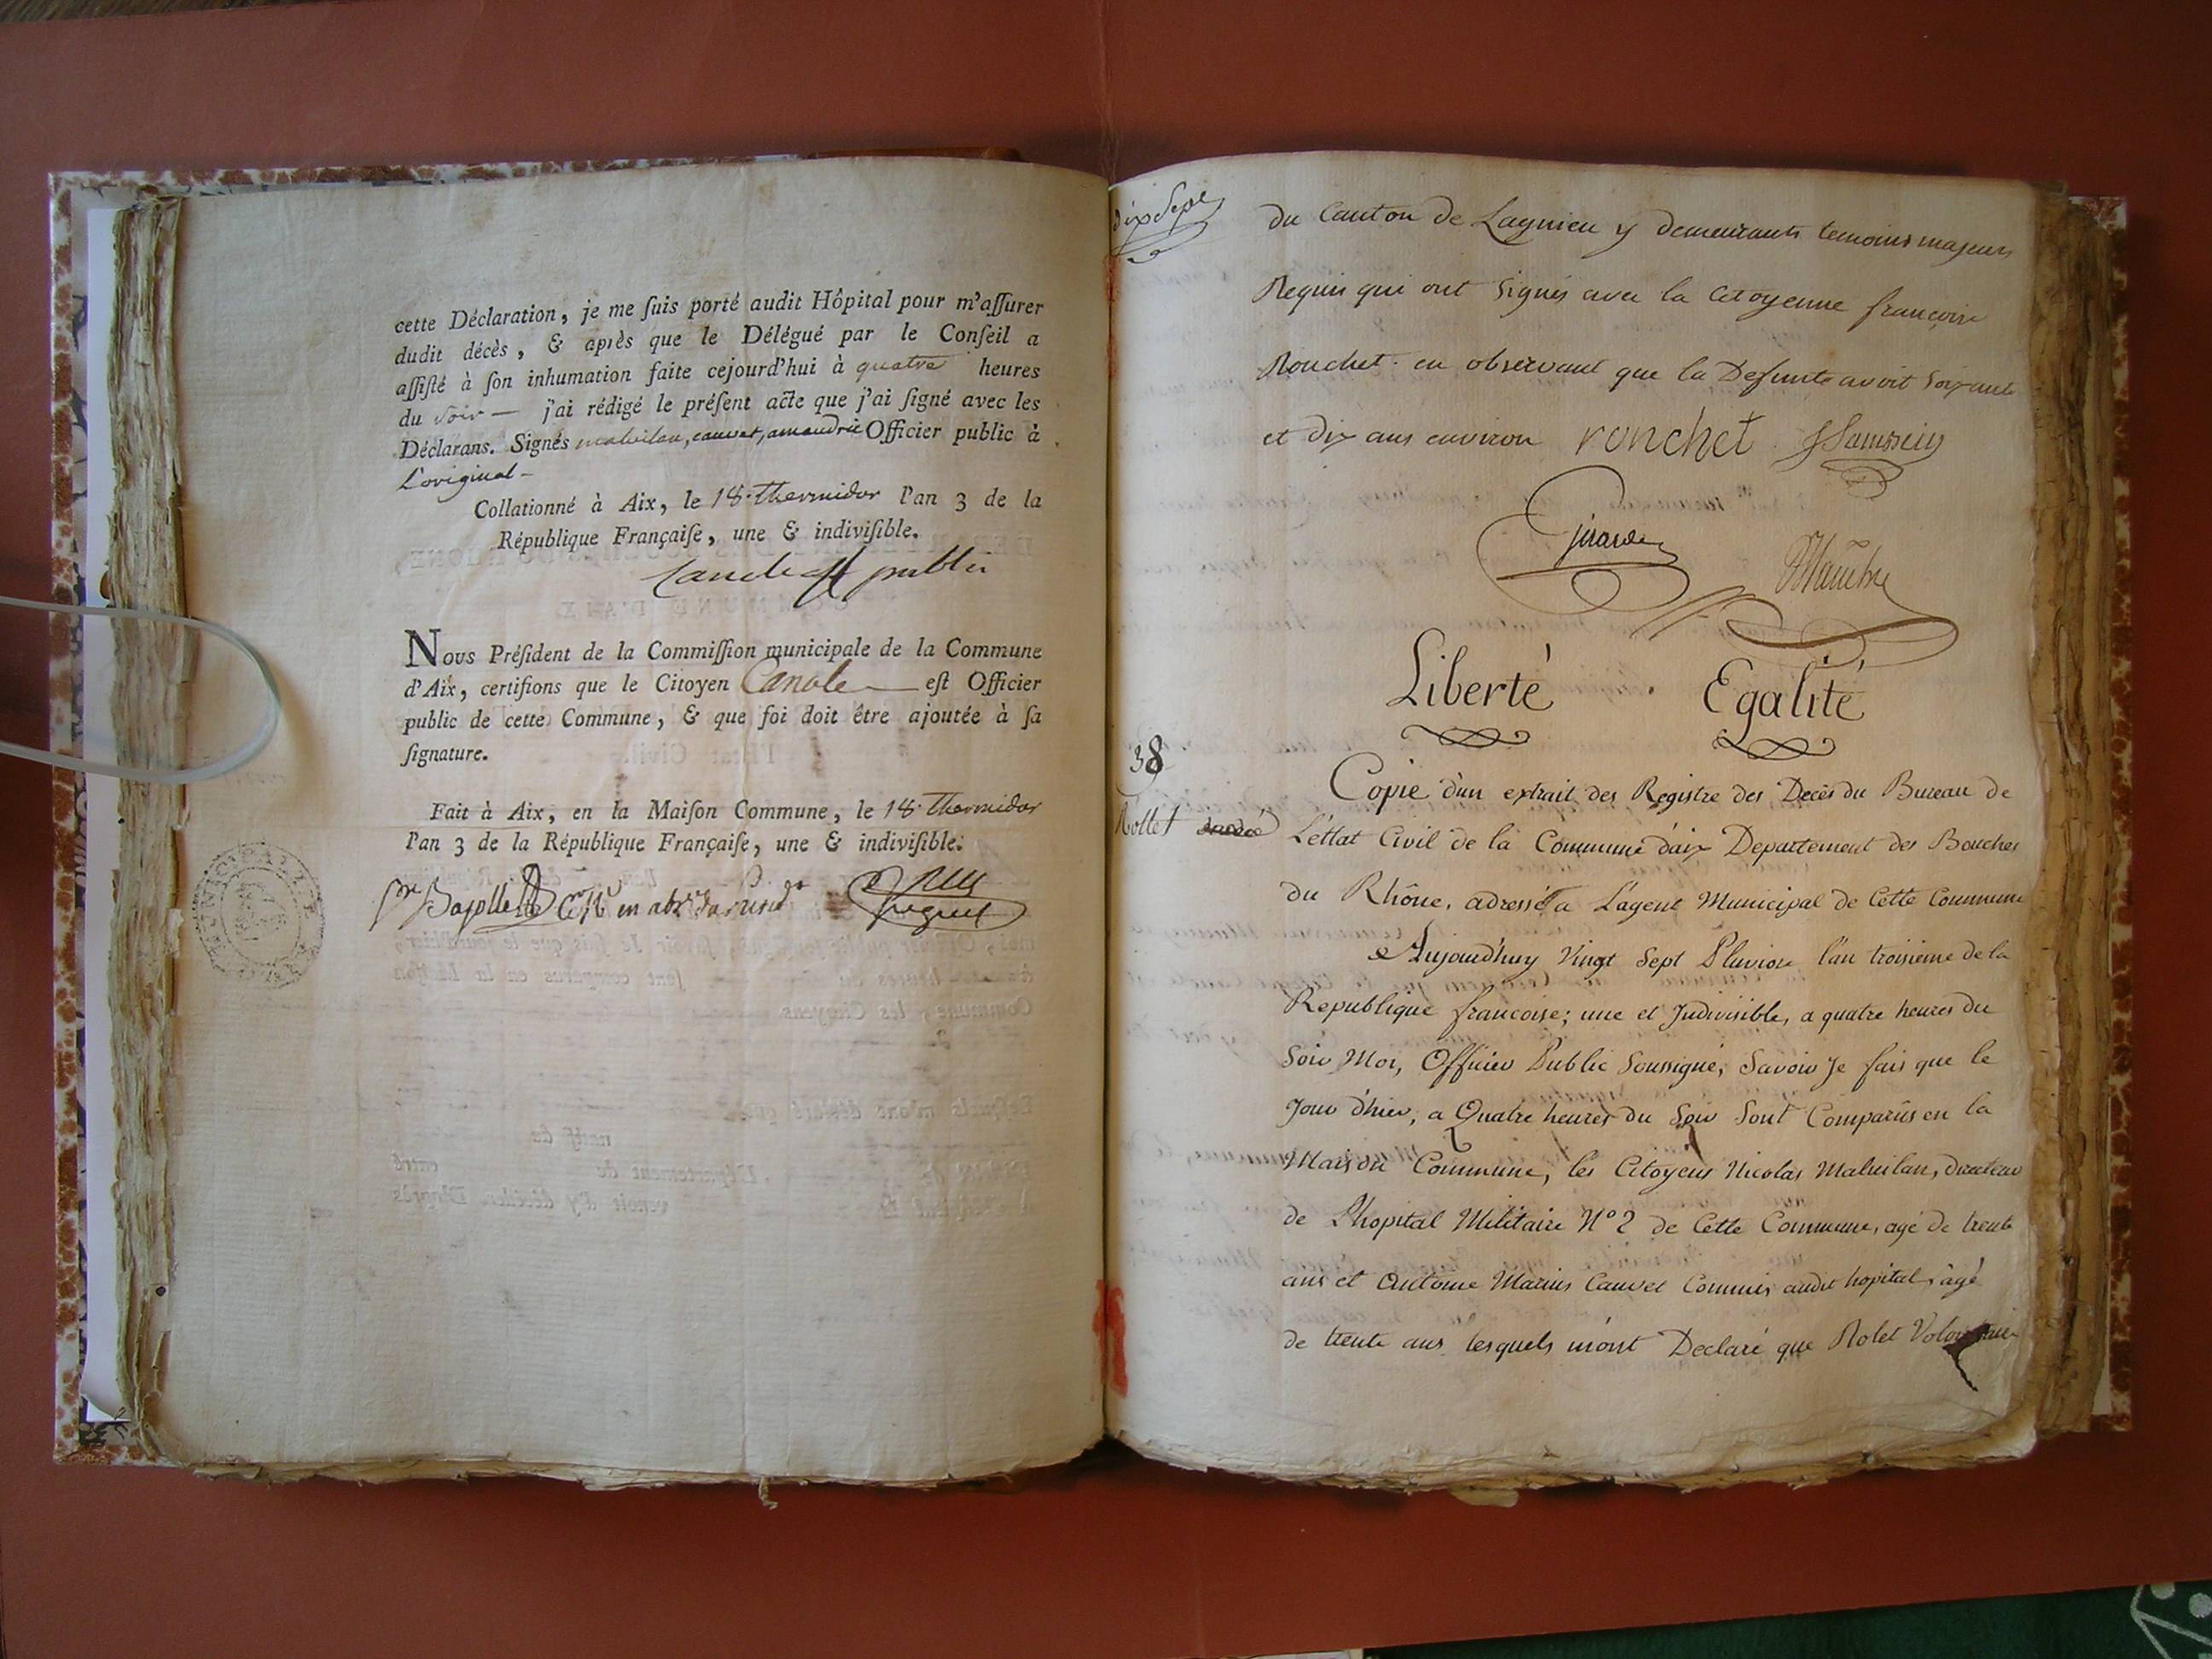 cette Déclaration, je me ſuis porté audit Hôpital pour m'aſſurer
dudit décès, & après que le Délégué par le Conſeil a
aſſiſté à ſon inhumation faite cejourd'hui à quatre heures
du soir — j'ai rédigé le préſent acte que j'ai ſigné avec les
Déclarans. Signés malvilan, cauvet, amaudric Officier public à
L'original -
Collationné à Aix, le 18 Thermidor l'an 3 de la
République Françaiſe, une & indiviſible.
public
Nous Préſident de la Commiſſion municipale de la Commune
d'Aix, certifions que le Citoyen est Officier
public de cette Commune, & que foi doit être ajoutée à ſa
ſignature.
Fait à Aix, en la Maiſon Commune, le 18 Thermidor
l'an 3 de la République Françaiſe, une & indiviſible.
dix Sept
du Canton de Lagnieu y demeurants temoins majeurs
Requis qui ont Signés avec la Citoyenne francoise
Ronchet en observant que la Defunte avoit Soixante
et dix ans environ ronchet
Girarde
Liberté Egalité
38
Rollet
Copie d'un extrait des Registre des Décès du Bureau de
L'éttat Civil de la Commune d'aix Departement des Bouches
du Rhône, adressé a L'agent Municipal de Cette Commune
Aujourd'huy Vingt Sept Pluviose l'an troisième de la
Republique francoise; une et Indivisible, a quatre heures du
Soir Moi, Officier Public Soussigné, Savoir Je fais que le
Jour d'hier, a Quatre heures du Soir Sont Comparûs en la
Maison Commune, les Citoyens Nicolas Malvilan, directeur
de L'hopital Militaire N° 2 de Cette Commune, agé de trente
ans et Antoine Marius Cauvet Commis audit hopital, âgé
de trente ans lesquels m'ont Declaré que Rolet Volontaire